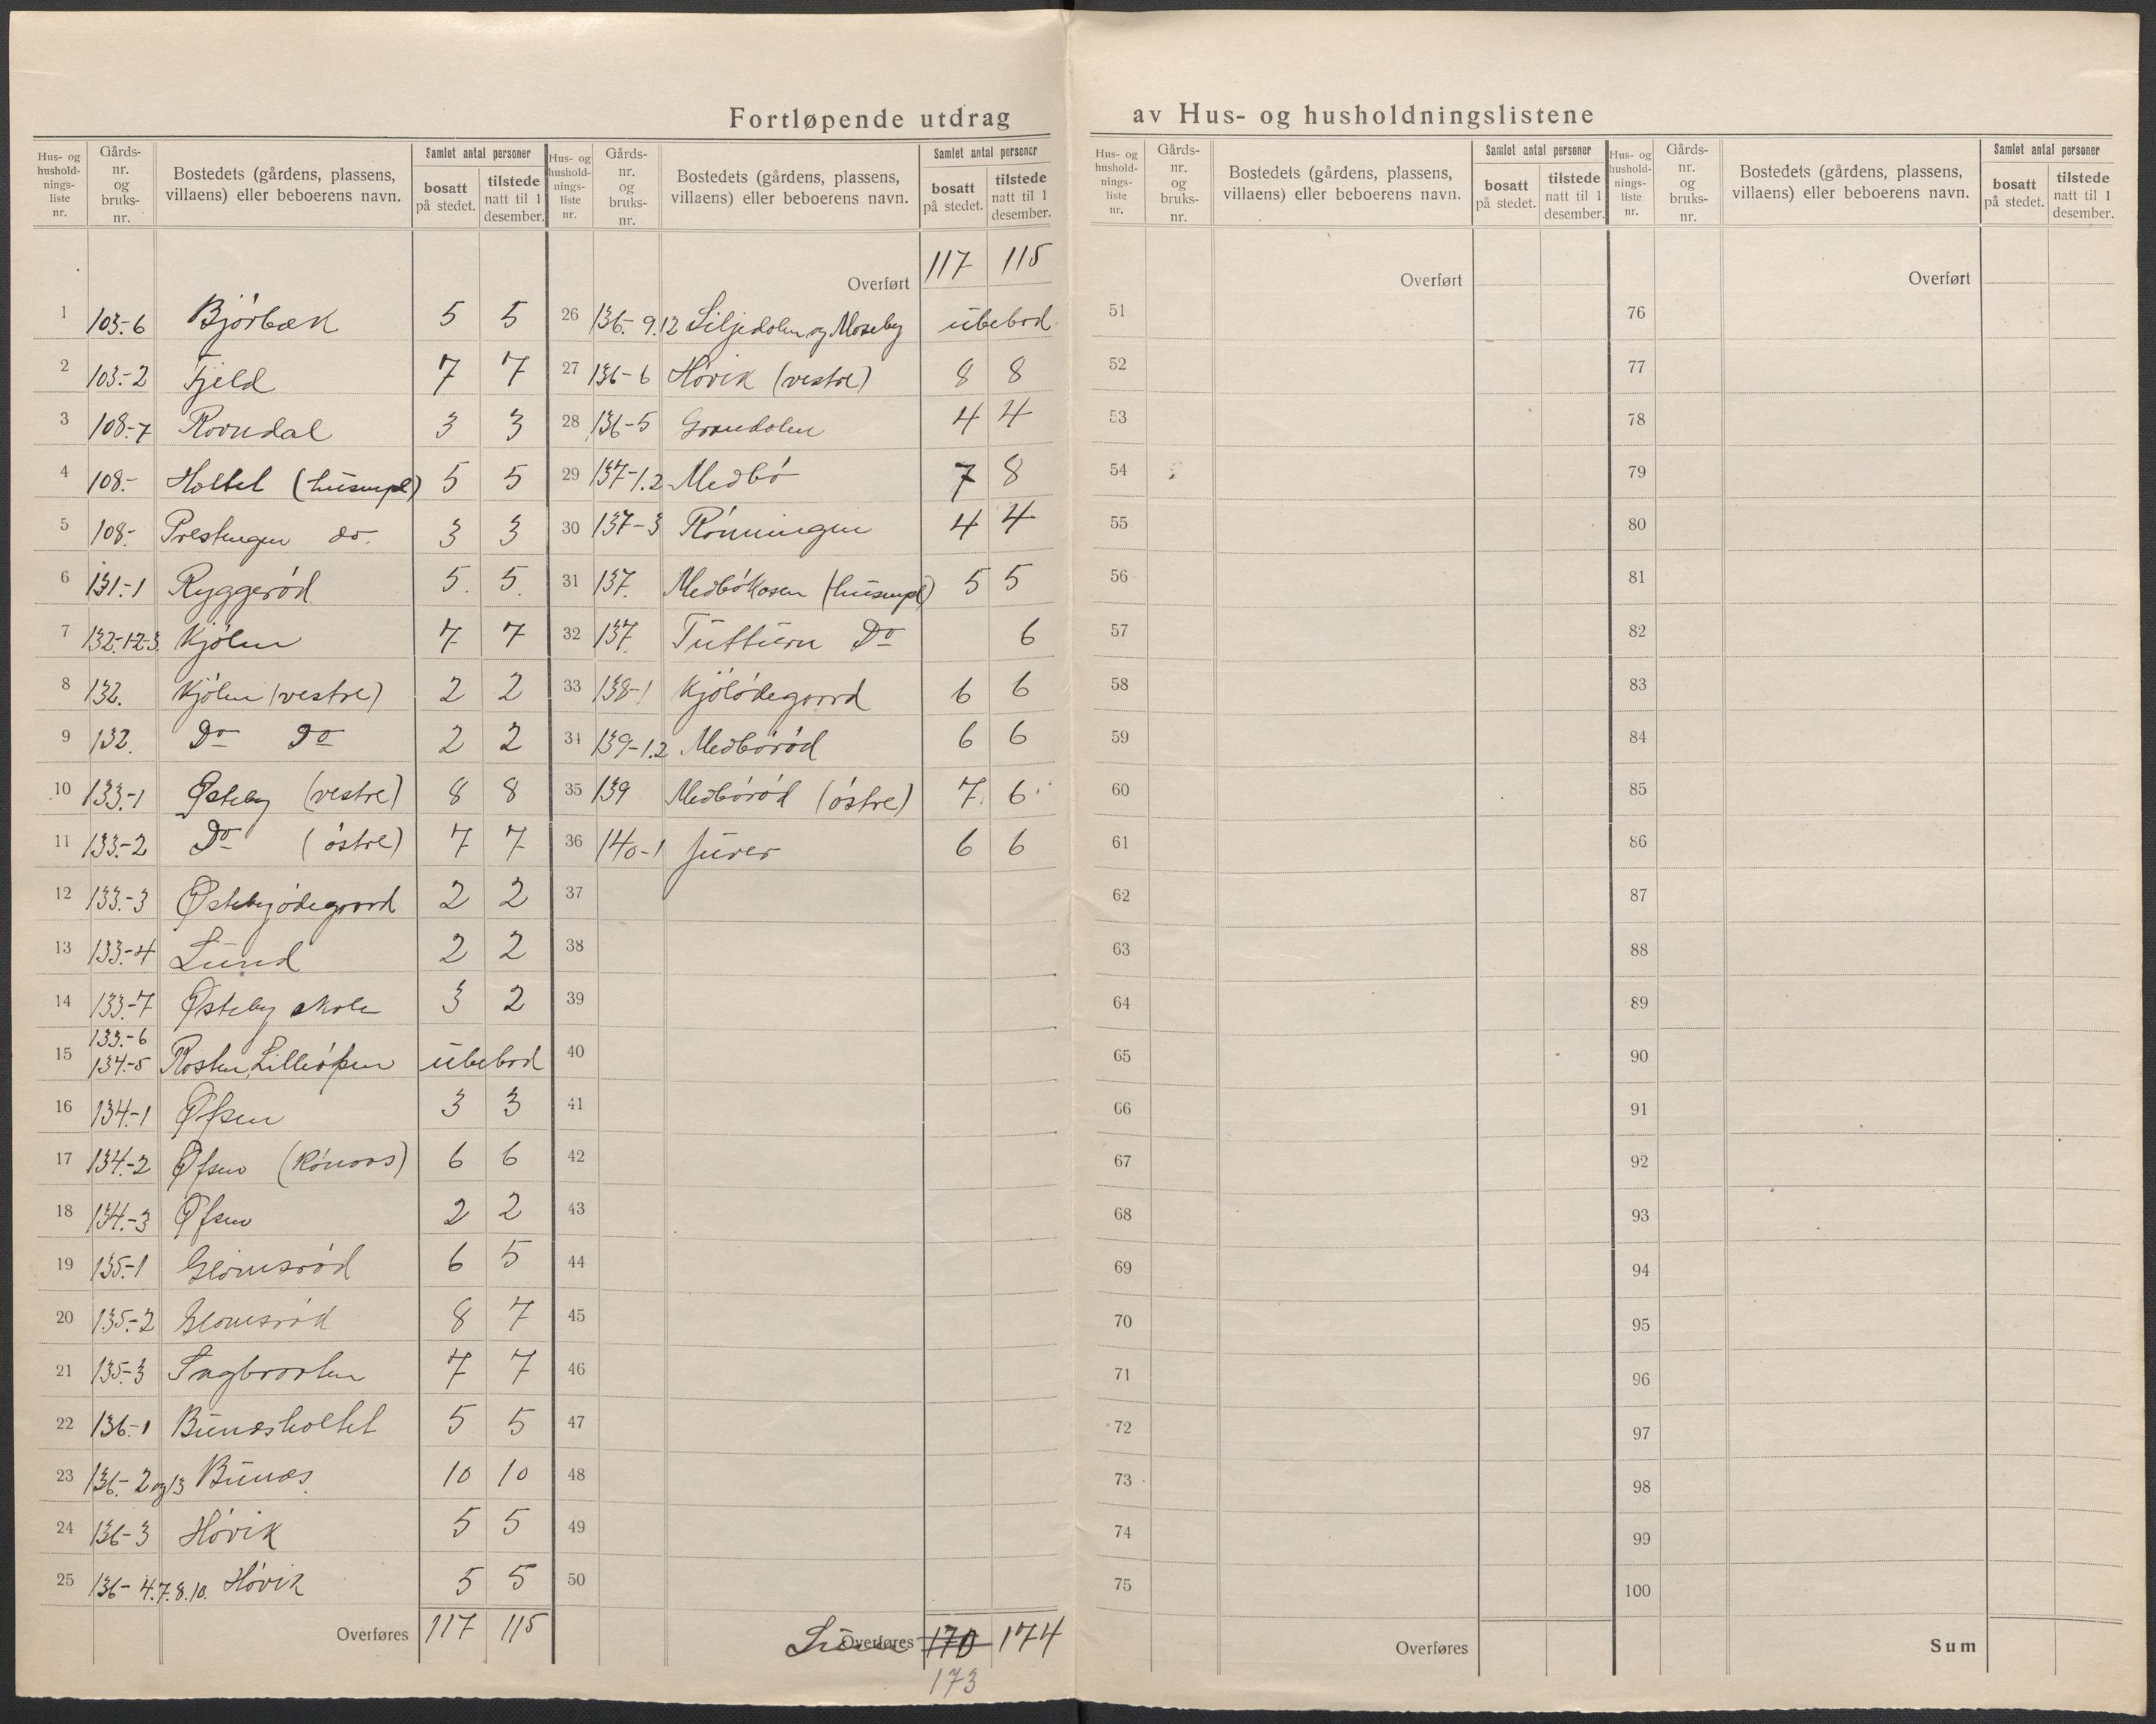 Fortløpende utdrag av Hus- og husholdningslistene
Hus- og hushold-nings-liste nr. | Gårds-nr. og bruks-nr. | Bostedets (gårdens, plassens, villaens) eller beboerens navn. | Samlet antal personer | bosatt på stedet. | tilstede natt til 1 desember.
1 103.-6 Bjørbæk 5 5
2 103.-2 Fjeld 7 7
3 108.-7 Rovndal 3 3
4 108.- Holtet (husmpl) 5 5
5 108.- Prestengen do. 3 3
6 131.-1 Ryggerød 5. 5.
7 132.-1-2-3. Kjølen 7 7
8 132. Kjølen (vestre) 2 2
9 132. Do Do 2 2
10 133.-1 Østeby (vestre) 8 8
11 133.-2 Do (østre) 7 7
12 133.-3 Østebyødegaard 2 2
13 133.-4 Lund 2 2
14 133-7 Østeby skole 3 2
15 133.-6 134.-5 Rosten, Lilleøfsen ubebod
16 134.-1 Øfsen 3 3
17 134.-2 Øfsen (Rønaas) 6 6
18 134.-3 Øfsen 2 2
19 135.-1 Glomsrød 6 5
20 135.-2 Glomsrød 8 7
21 135.-3 Sagbraaten 7 7
22 136.-1 Bunæsholtet 5 5
23 136.-2 og 13 Bunæs. 10 10
24 136-3 Høvik 5 5
25 136-4.7.8.10. Høvik 5 5
Overføres 117 115
Hus- og hushold-nings-liste nr. | Gårds-nr. og bruks-nr. | Bostedets (gårdens, plassens, villaens) eller beboerens navn. | Samlet antal personer | bosatt på stedet. | tilstede natt til 1 desember.
Overført 117 115
26 136.-9.12 Liljedalen og Moseby ubebod.
27 136-6 Høvik (vestre) 8 8
28 136-5 Grandalen 4 4
29 137-1.2 Medbø 7 8
30 137-3 Rønningen 4 4
31 137. Medbøkasen (husmpl) 5 5
32 137. Do 6
33 138-1 Kjølødegaard 6 6
34 139-1.2 Medbørød 6 6
35 139 Medbørød (østre) 7. 6
36 140-1 Juver 6 6
37
38
39
40
41
42
43
44
45
46
47
48
49
50
Overføres 170 174
173
Hus- og hushold-nings-liste nr. | Gårds-nr. og bruks-nr. | Bostedets (gårdens, plassens, villaens) eller beboerens navn. | Samlet antal personer | bosatt på stedet. | tilstede natt til 1 desember.
Overført
51
52
53
54
55
56
57
58
59
60
61
62
63
64
65
66
67
68
69
70
71
72
73
74
75
Overføres
Hus- og hushold-nings-liste nr. | Gårds-nr. og bruks-nr. | Bostedets (gårdens, plassens, villaens) eller beboerens navn. | Samlet antal personer | bosatt på stedet. | tilstede natt til 1 desember.
Overført
76
77
78
79
80
81
82
83
84
85
86
87
88
89
90
91
92
93
94
95
96
97
98
99
100
Sum